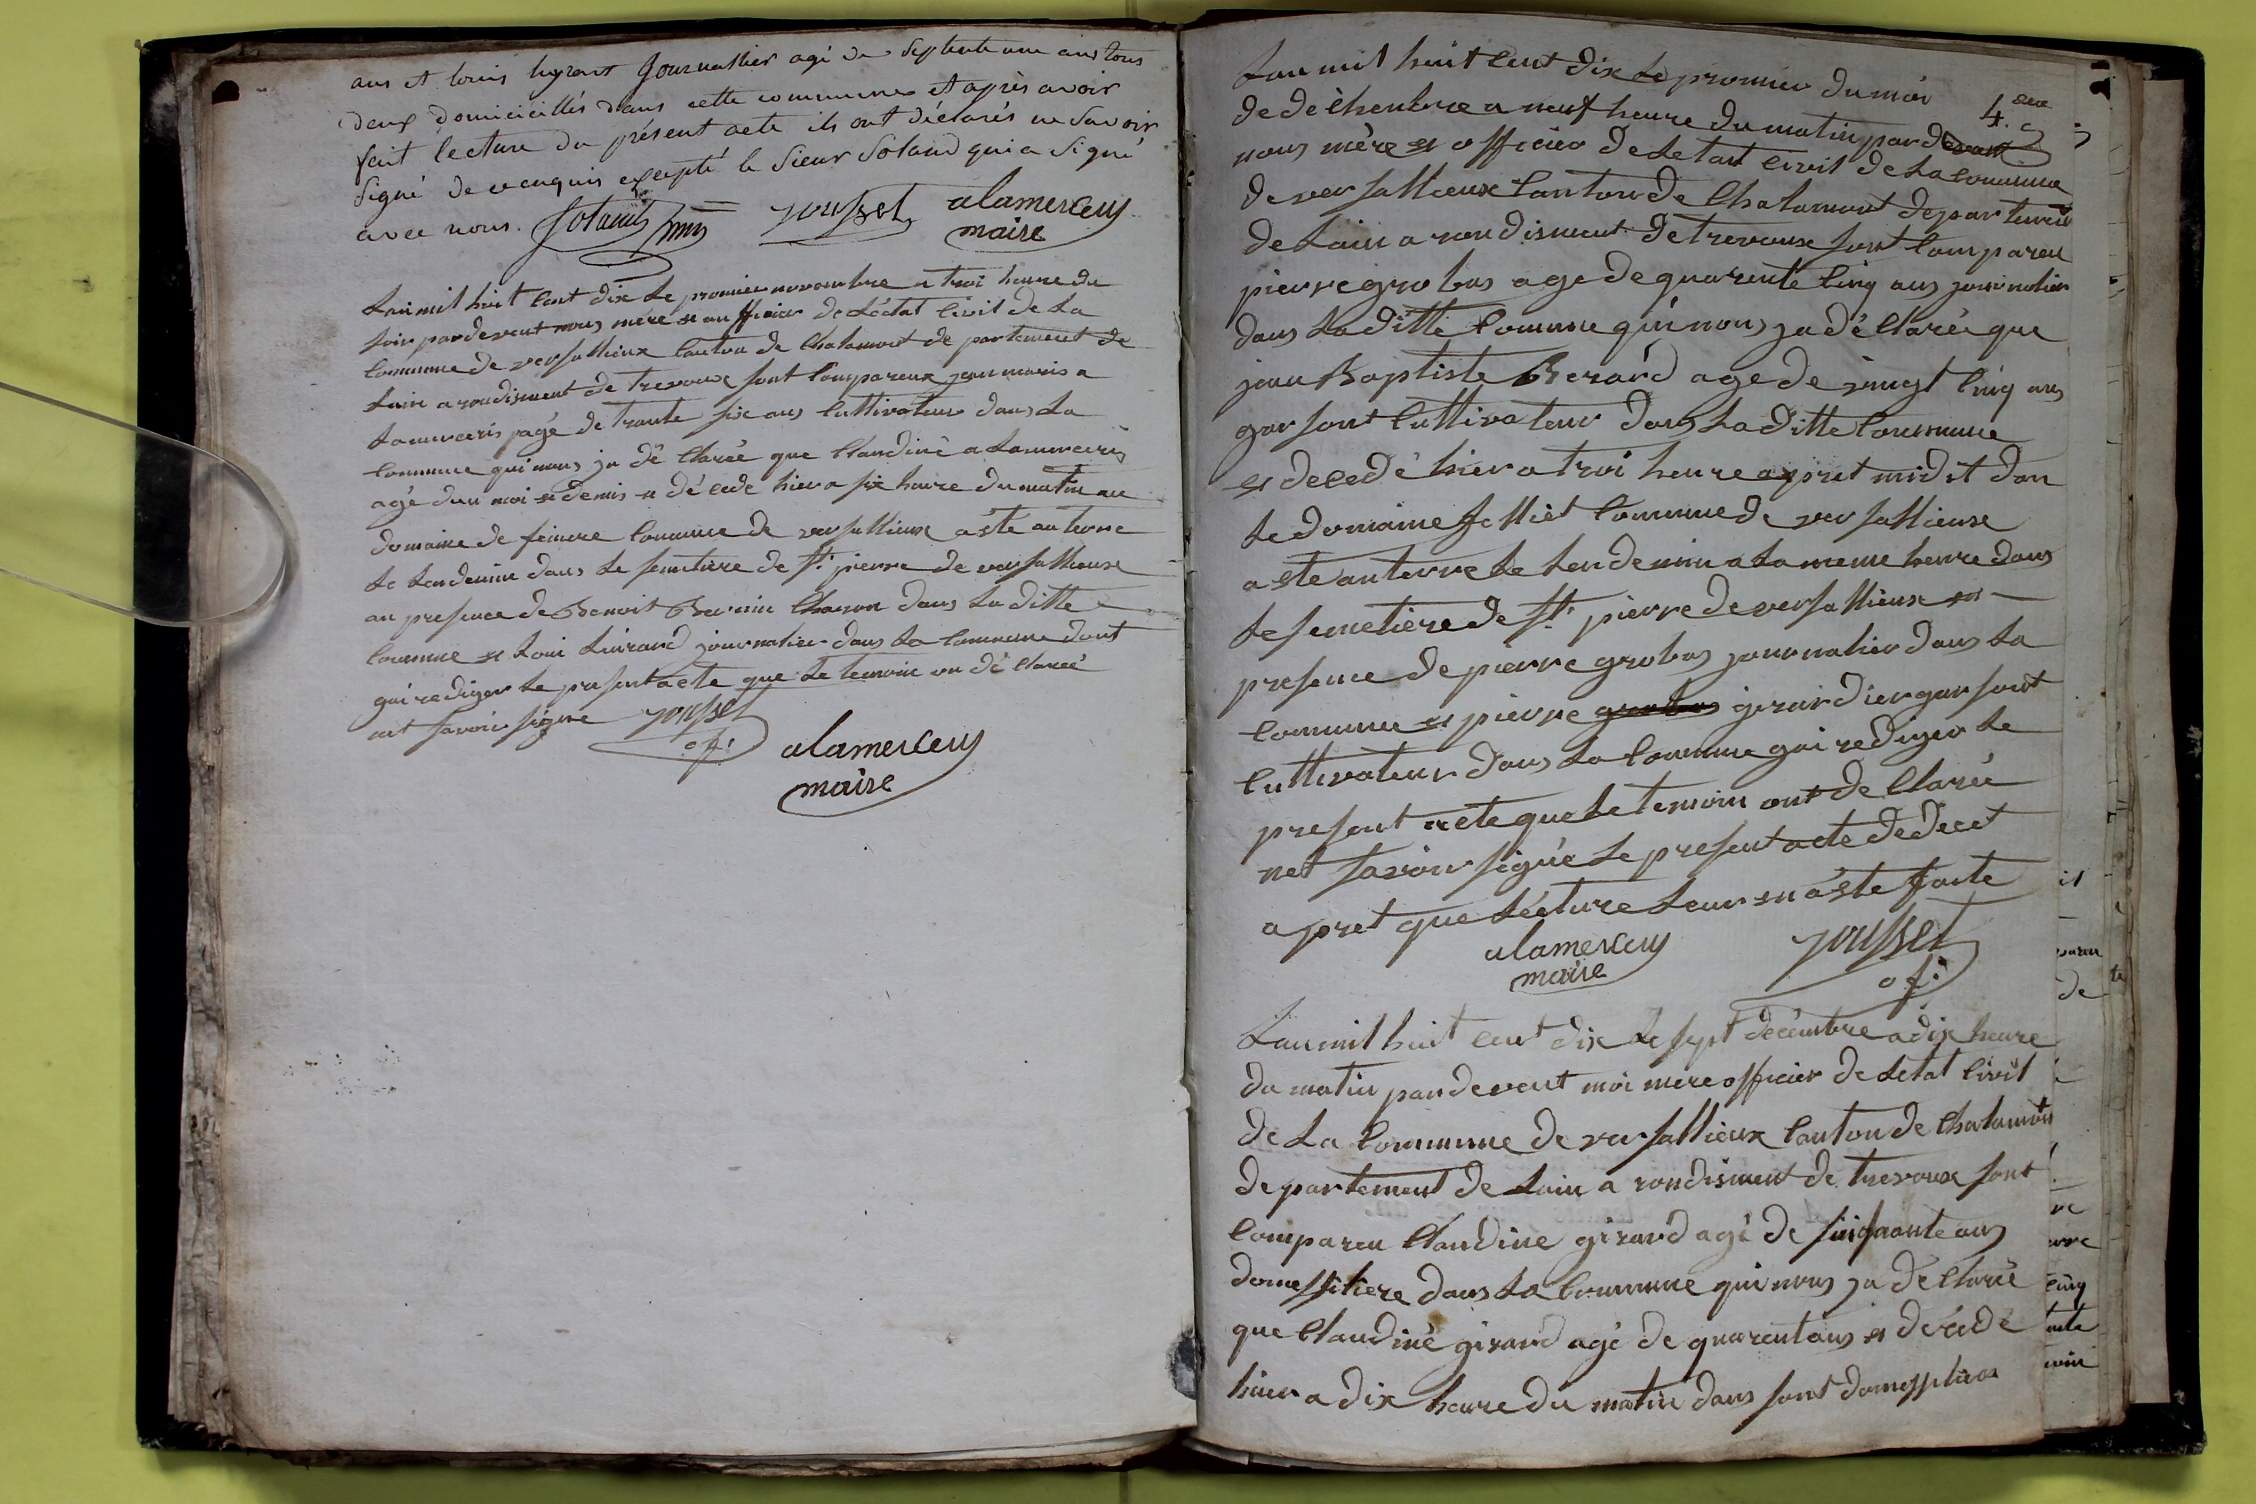 ans et louis lugrant Journallier agé de septente un ans tous
deux domicicillés dans cette commune et après avoir
fait lecture du présent acte ils ont déclarés ne savoir
signé de ce enquis excepté le sieur Soland qui a signé
avec nous. Soland Jousset alamercery
maire
Lan mil huit cent dix le premier novembre a troi heure du
soir pardevent nous mère et aufficier de Létat civil de La
commune de versallieux canton de Chalamont de partement de
Lain a rondisment de trevoux sont compareux jean marie a
Lamercerie agé de trante six ans cultivateur dans La
commune qui nous ja dé claréé que Claudine a Lamercerie
agé dun moi et demis et dé cede hier a six heure du matin au
domaine de commune de versallieux a été anterre
Le Landemin dans Le semetiere de st: pierre de versallieux
an presence de Benoit Charon dans La ditte
commune et Loui journalier dans La commune dont
gai rediger Le present acte que Le temoin on dé claréé
net savoir signe Jousset
of: alamercery
maire
Lan mil huit cent dix Le premier du moi
de déchenbre a neuf heure du matin par devant
4.eme
nous mère et officier de Letant civil de La commune
de versallieux canton de Chalamont departement
de Lain a rondisment de trevoux sont compareu
pierre grobas age de quarente cinq ans journalier
dans La ditte commune qui nous ja déclarée que
jean Baptiste Berard age de vingt cinq ans
garsont cultivateur dans La ditte commune
et decedé hier a troi heure apret midit dan
Le domaine commune de versallieux
a ete anterre Le Lendemin a La meme heure dans
Le semetière de st: pierre de versallieux en
presence de pierre grobas journalier dans La
commune et pierre grobas girardier garsont
cultivateur dans La commune gai rediger Le
present acte que Le temoin ont de clarée
net savoir signe Le present acte de decet
apret que Lécture Leur en a ete faite
alamercery Jousset
maire of:
Lan mil huit cent dix Le sept décembre a dix heure
du matin pandevent moi mere officier de Letat civil
de La commune de versallieux canton de Chalamont
departement de Lain a rondisment de trevoux sont
compareu Claudine girard agé de sinquante ans
dans La commune qui nous ja déclarée
que Claudine girard agé de quarent ans et décédé
hier a dix heure du matin dans sont